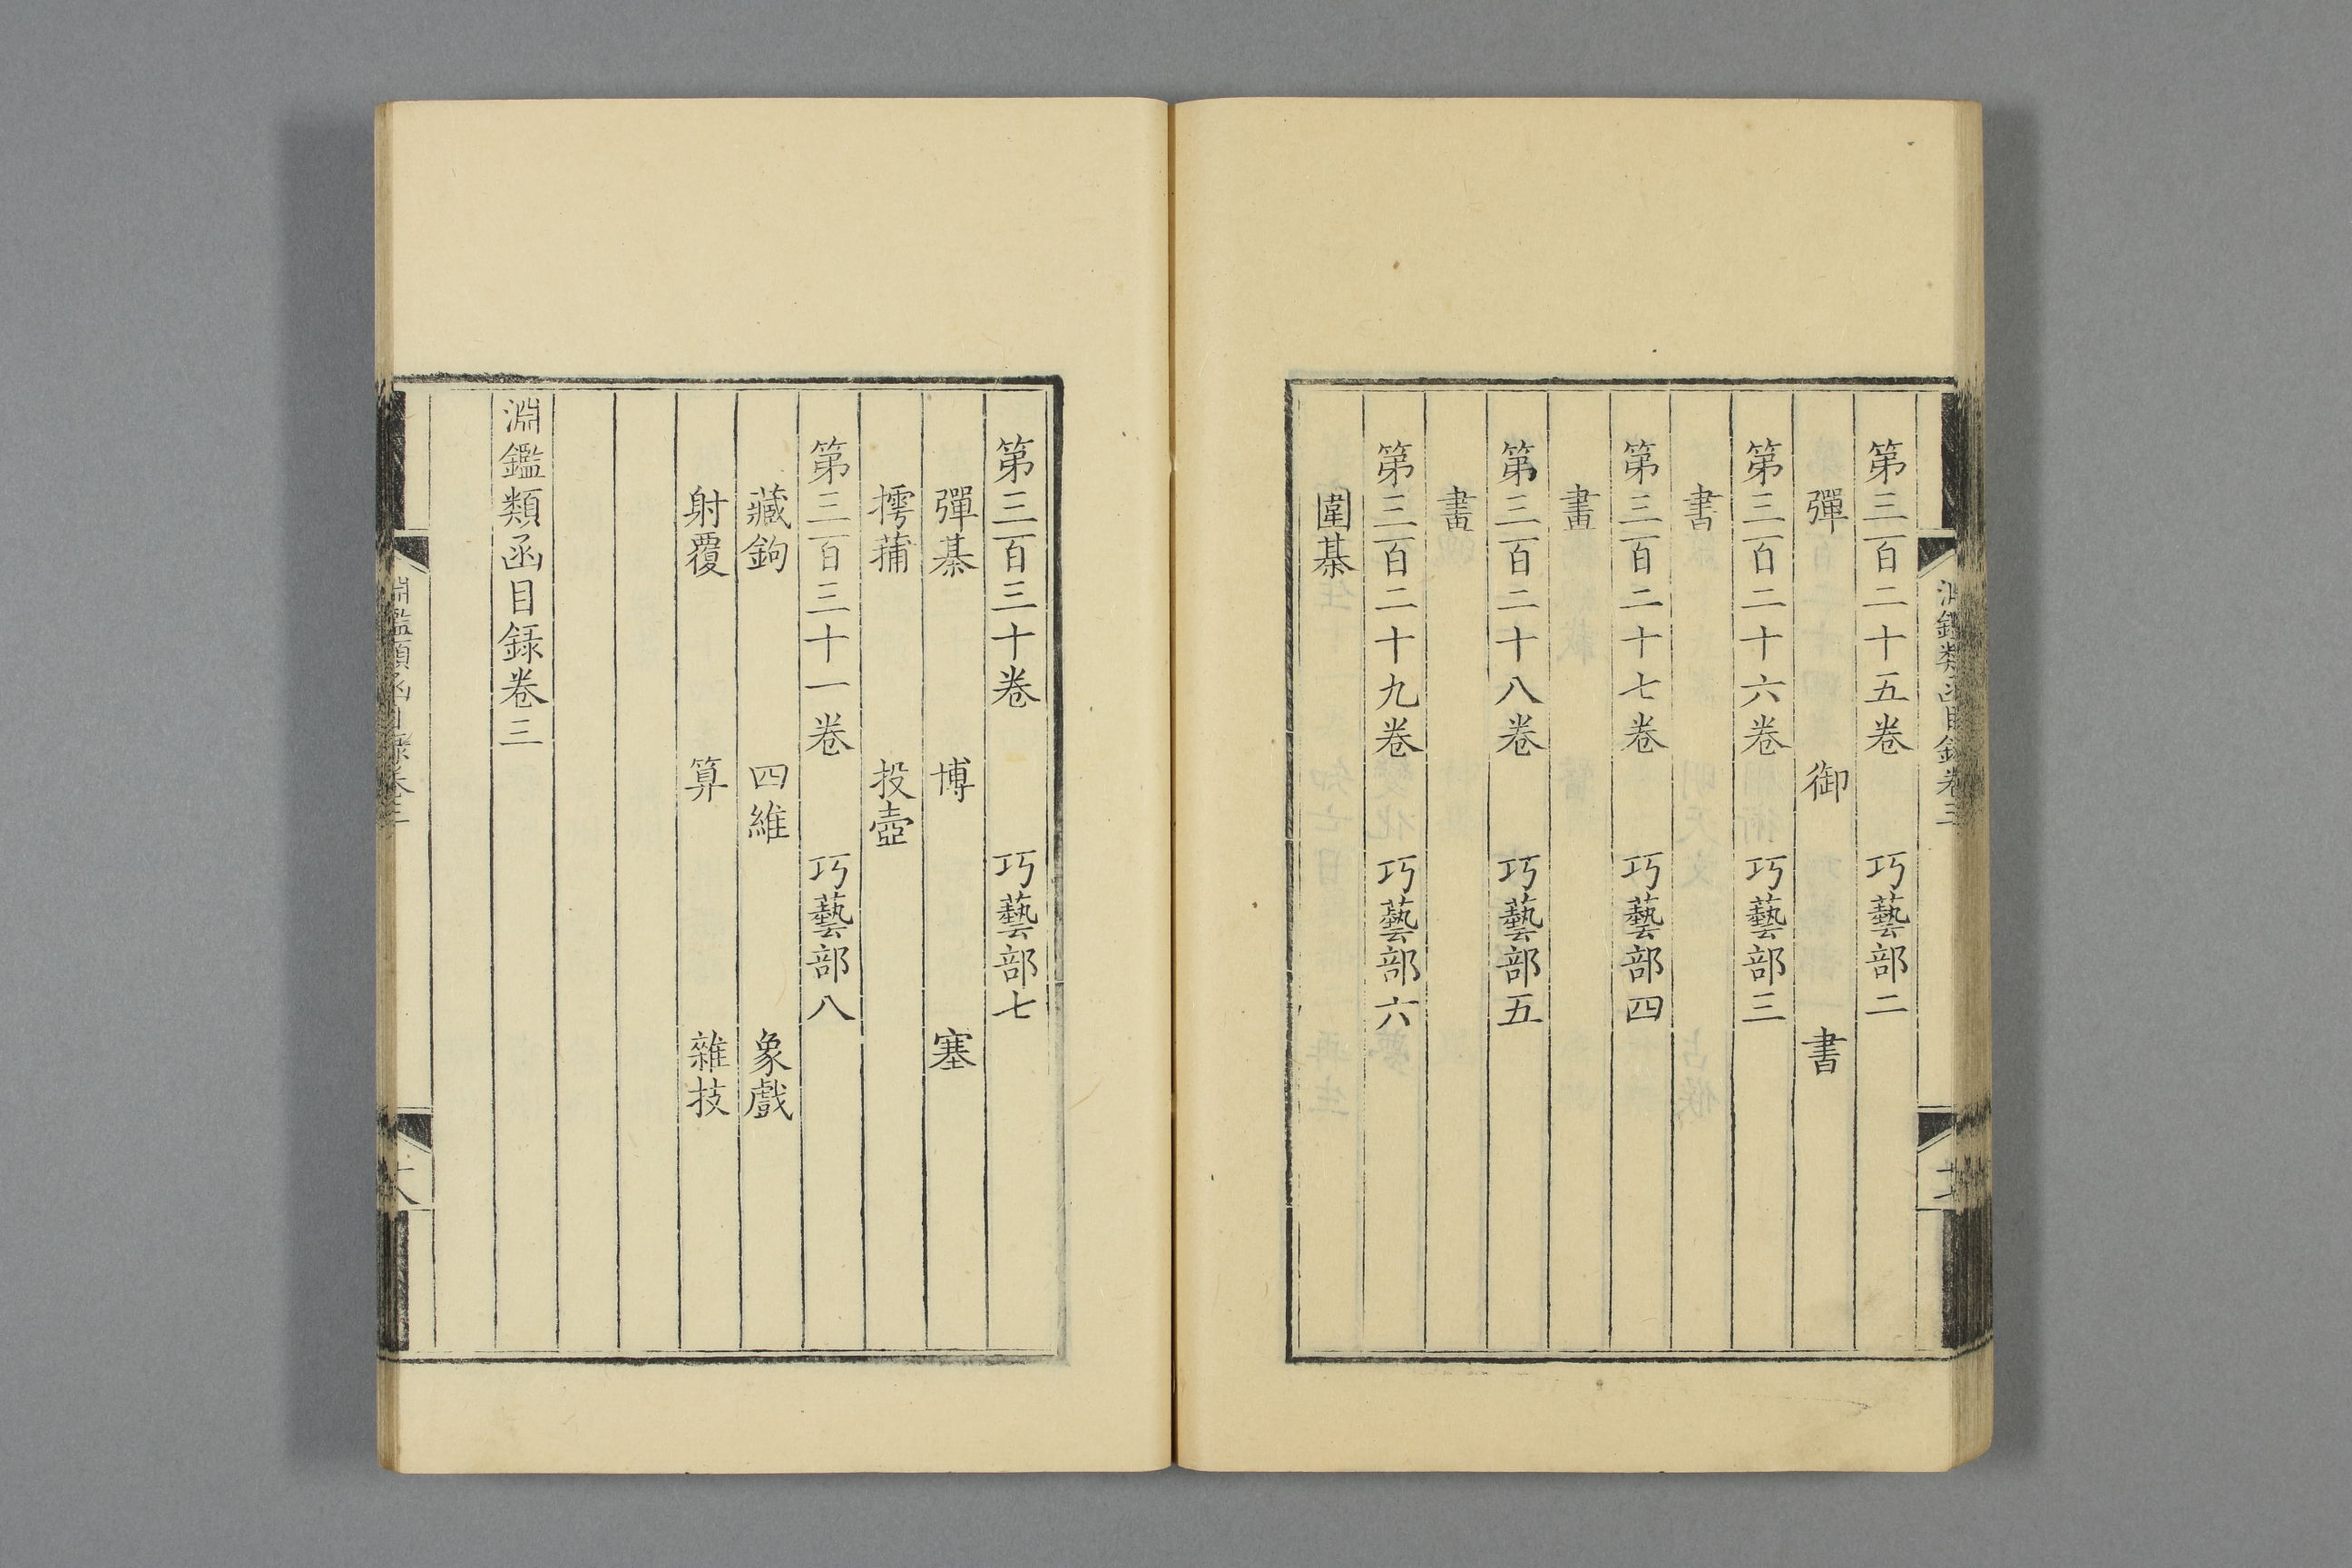 第三百二十五卷 巧藝部二
彈 御 書
第三百二十六卷 巧藝部三
書
第三百二十七卷 巧藝部四
畫
第三百二十八卷 巧藝部五
畫
第三百二十九卷 巧藝部六
圍棊
第三百三十卷 巧藝部七
彈棊 博 塞
摴蒱 投壺
第三百三十一卷 巧藝部八
藏鉤 四維 象戲
射覆 算 雜技
淵鑑類函目録卷三